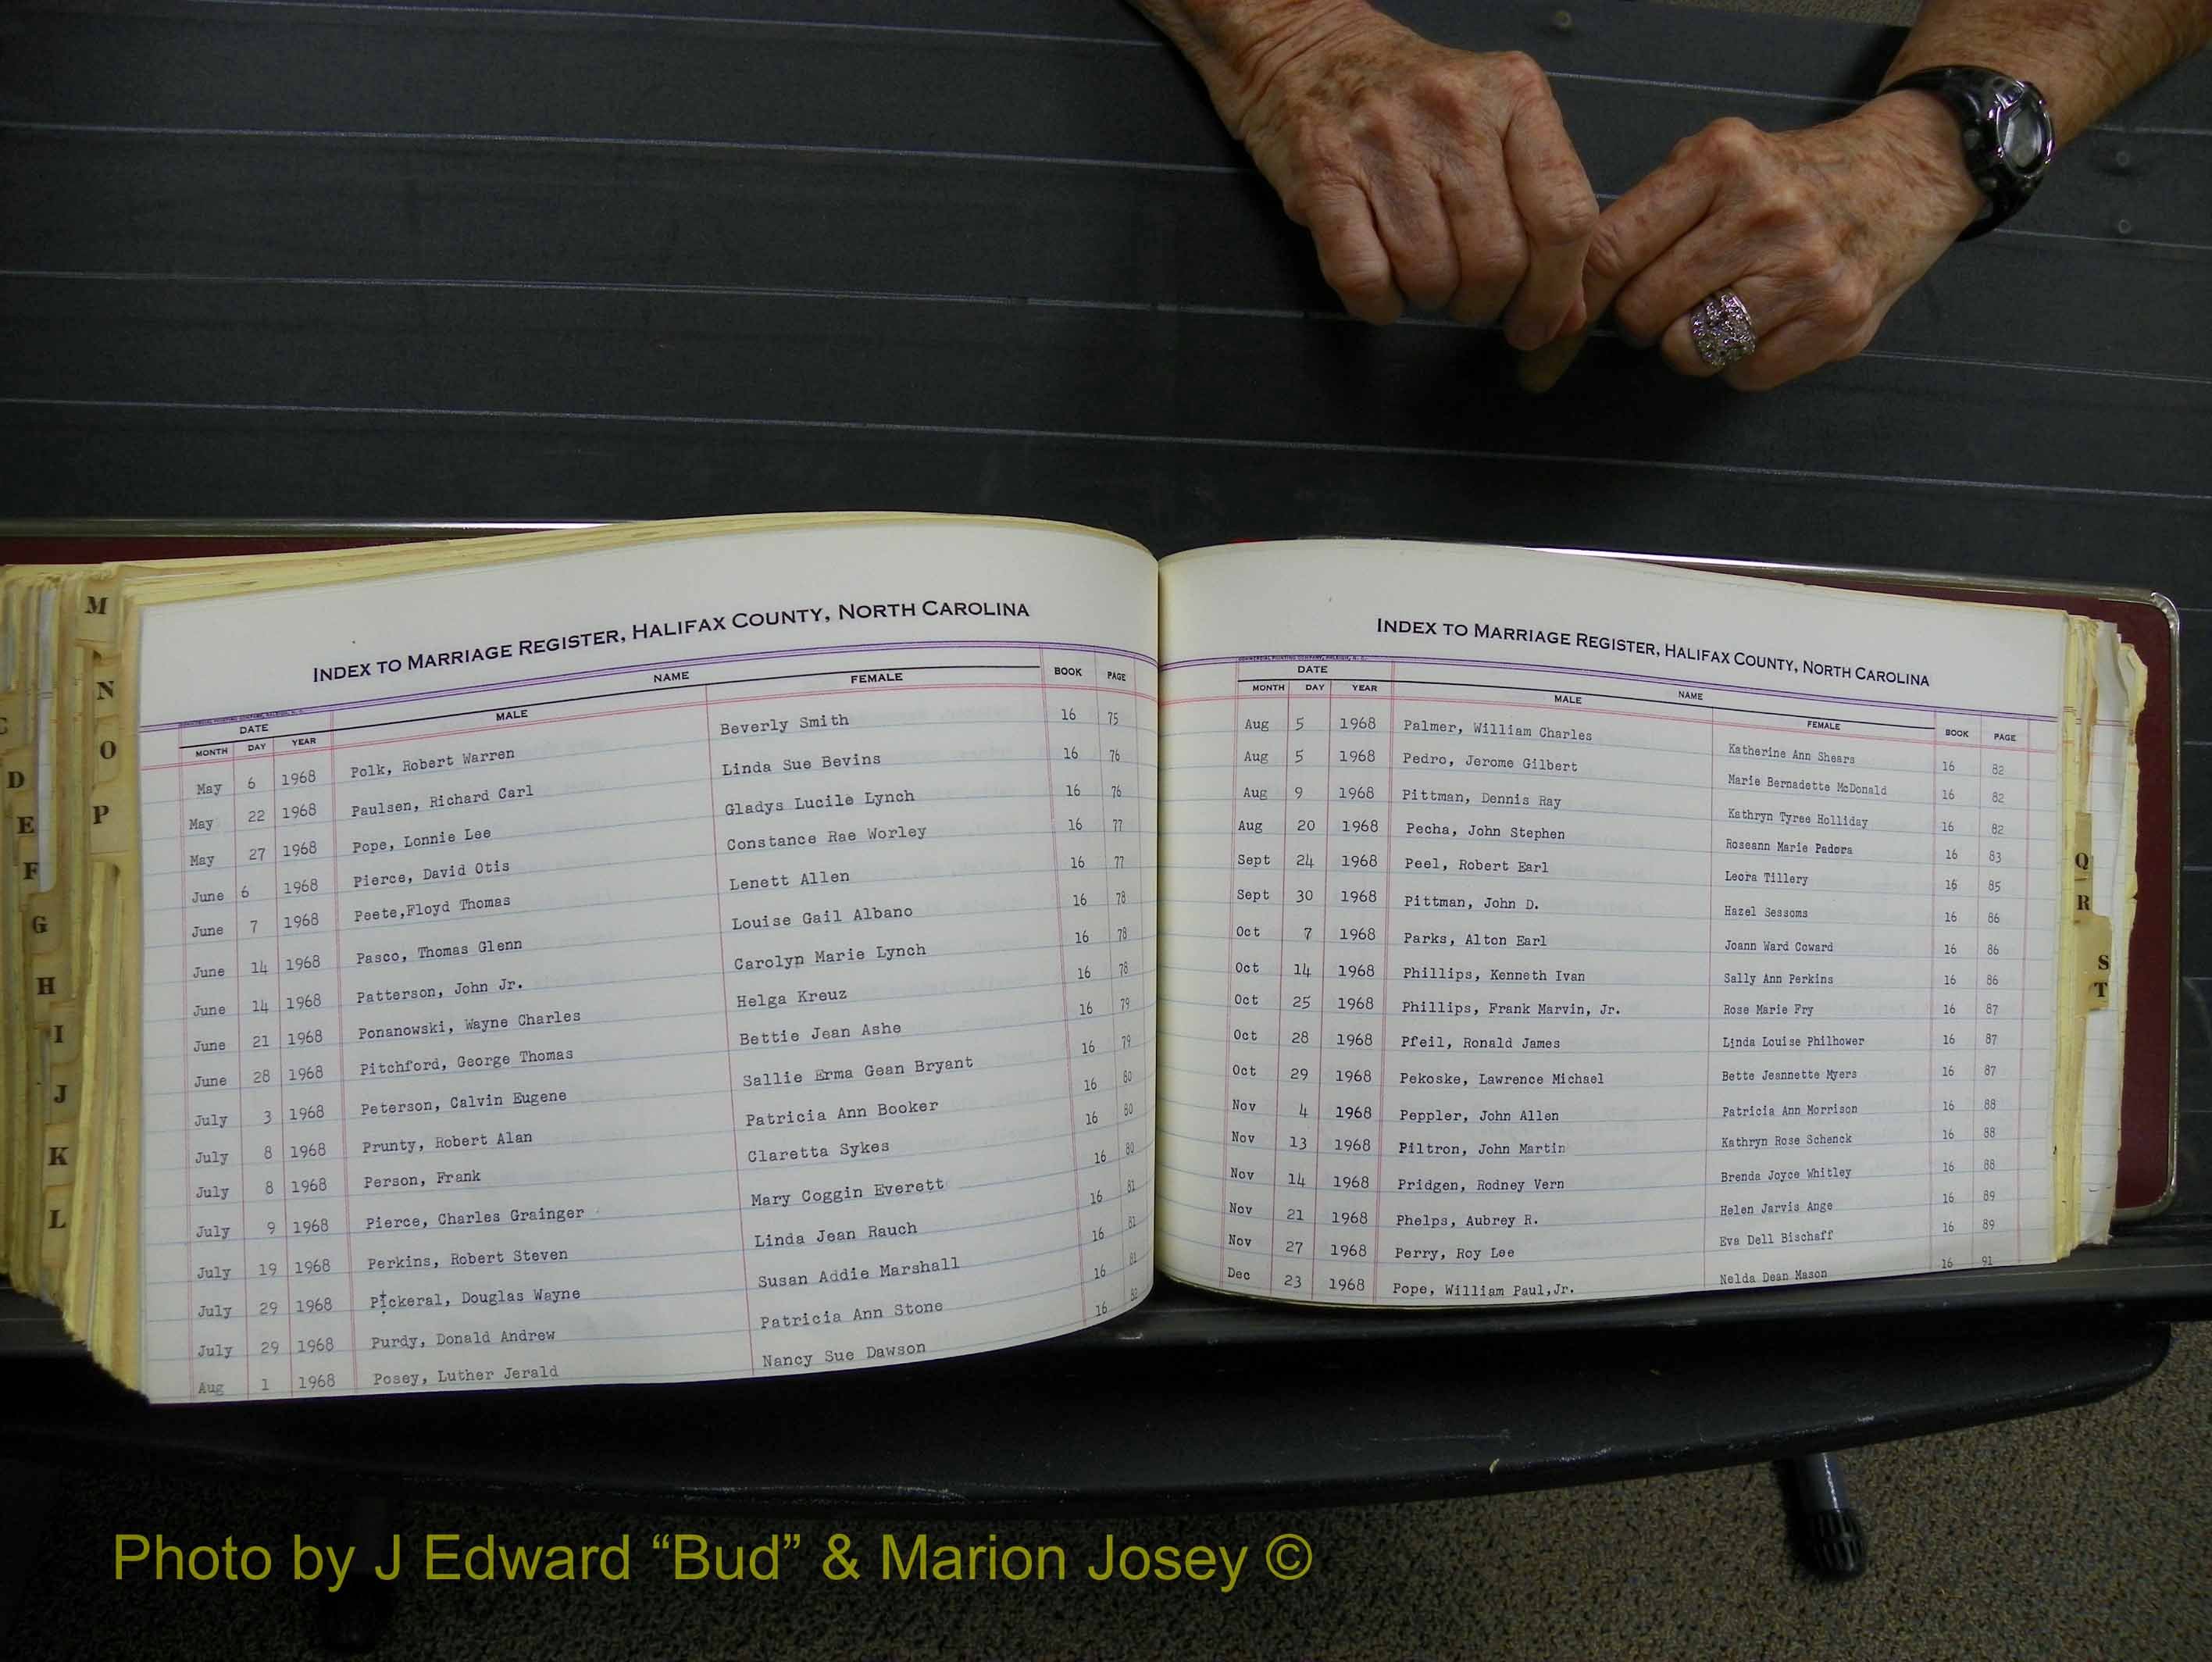 INDEX TO MARRIAGE REGISTER, HALIFAX COUNTY, NORTH CAROLINA
DATE NAME BOOK PAGE
MONTH DAY YEAR MALE FEMALE
May 6 1968 Polk, Robert Warren Beverly Smith 16 75
May 22 1968 Paulsen, Richard Carl Linda Sue Bevins 16 76
May 27 1968 Pope, Lonnie Lee Gladys Lucile Lynch 16 76
June 6 1968 Pierce, David Otis Constance Rae Worley 16 77
June 7 1968 Peete,Floyd Thomas Lenett Allen 16 77
June 14 1968 Pasco, Thomas Glenn Louise Gail Albano 16 78
June 14 1968 Patterson, John Jr. Carolyn Marie Lynch 16 78
June 21 1968 Ponanowski, Wayne Charles Helga Kreuz 16 78
June 28 1968 Pitchford, George Thomas Bettie Jean Ashe 16 79
July 3 1968 Peterson, Calvin Eugene Sallie Erma Gean Bryant 16 79
July 8 1968 Prunty, Robert Alan Patricia Ann Booker 16 80
July 8 1968 Person, Frank Claretta Sykes 16 80
July 9 1968 Pierce, Charles Grainger Mary Coggin Everett 16 80
July 19 1968 Perkins, Robert Steven Linda Jean Rauch 16 81
July 29 1968 Pickeral, Douglas Wayne Susan Addie Marshall 16 81
July 29 1968 Purdy, Donald Andrew Patricia Ann Stone 16 81
Aug 1 1968 Posey, Luther Jerald Nancy Sue Dawson 16
INDEX TO MARRIAGE REGISTER, HALIFAX COUNTY, NORTH CAROLINA
DATE NAME
MONTH DAY YEAR MALE FEMALE BOOK PAGE
Aug 5 1968 Palmer, William Charles Katherine Ann Shears 16 82
Aug 5 1968 Pedro, Jerome Gilbert Marie Bernadette McDonald 16 82
Aug 9 1968 Pittman, Dennis Ray Kathryn Tyree Holliday 16 82
Aug 20 1968 Pecha, John Stephen Roseann Marie Padora 16 83
Sept 24 1968 Peel, Robert Earl Leora Tillery 16 85
Sept 30 1968 Pittman, John D. Hazel Sessoms 16 86
Oct 7 1968 Parks, Alton Earl Joann Ward Coward 16 86
Oct 14 1968 Phillips, Kenneth Ivan Sally Ann Perkins 16 86
Oct 25 1968 Phillips, Frank Marvin, Jr. Rose Marie Fry 16 87
Oct 28 1968 Pfeil, Ronald James Linda Louise Philhower 16 87
Oct 29 1968 Pekoske, Lawrence Michael Bette Jeannette Myers 16 87
Nov 4 1968 Peppler, John Allen Patricia Ann Morrison 16 88
Nov 13 1968 Piltron, John Martin Kathryn Rose Schenck 16 88
Nov 14 1968 Pridgen, Rodney Vern Brenda Joyce Whitley 16 88
Nov 21 1968 Phelps, Aubrey R. Helen Jarvis Ange 16 89
Nov 27 1968 Perry, Roy Lee Eva Dell Bischaff 16 89
Dec 23 1968 Pope, William Paul,Jr. Nelda Dean Mason 16 91
D
E
F
G
H
I
J
K
L
M
N
O
P
Q
R
S
T
Photo by J Edward “Bud” & Marion Josey ©